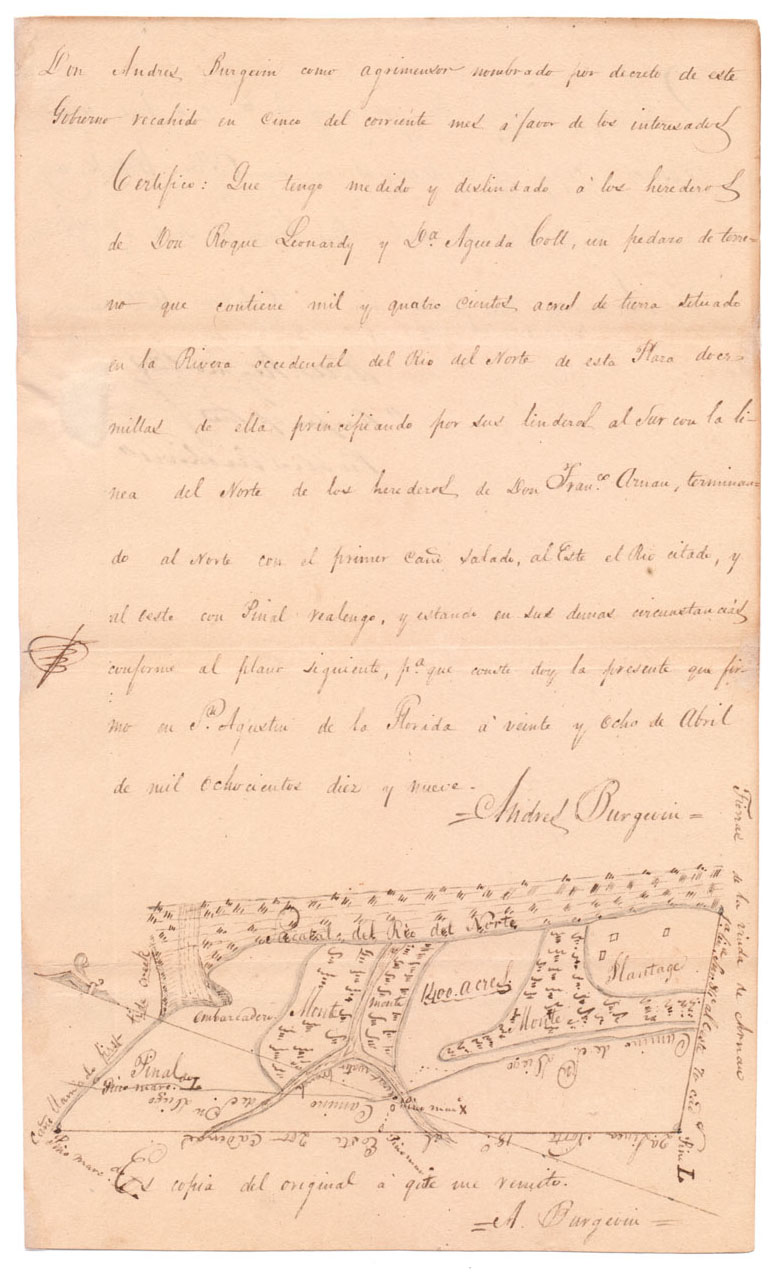 Don Andres Burgevin como agrimensor nombrado por decreto de este
Gobierno recahido en Cinco del corriente mes á favor de los interesados
Certifico: Que tengo medido y deslindado á los herederos
de Don Roque Leonardy y Da. Agueda Coll, un pedazo de terre-
no que contiene mil y quatro cientos acres de tierra situado
en la Rivera occidental del Rio del Norte de esta Plaza doce
millas de ella principiando por sus linderos al Sur con la li-
nea del Norte de los herederos de Don Franco. Arnau, terminan-
do al Norte con el primer Caño salado, al Este el Rio citado, y
al oeste con Pinal realengo, y estando en sus demas circunstancias
conforme al plano siguiente, pa. que conste doy la presente que fir-
mo en Sn. Agustin de la Florida á veinte y ocho de Abril
de mil ochocientos diez y nueve.
=Andres Burgevin=
Tierras de la viuda de Arnau
Zacatal del Rio del Norte
Plantage
1400. acres
Monte
Monte
monte
Embarcadero
Camino de
Dn Diego
Pinal
Pino marc
Caño llamado
Camino de Dn Diego
Pino marx
Pino marc
Pino
L
Es copia del original á qe. me remito.
=A. Burgevin=